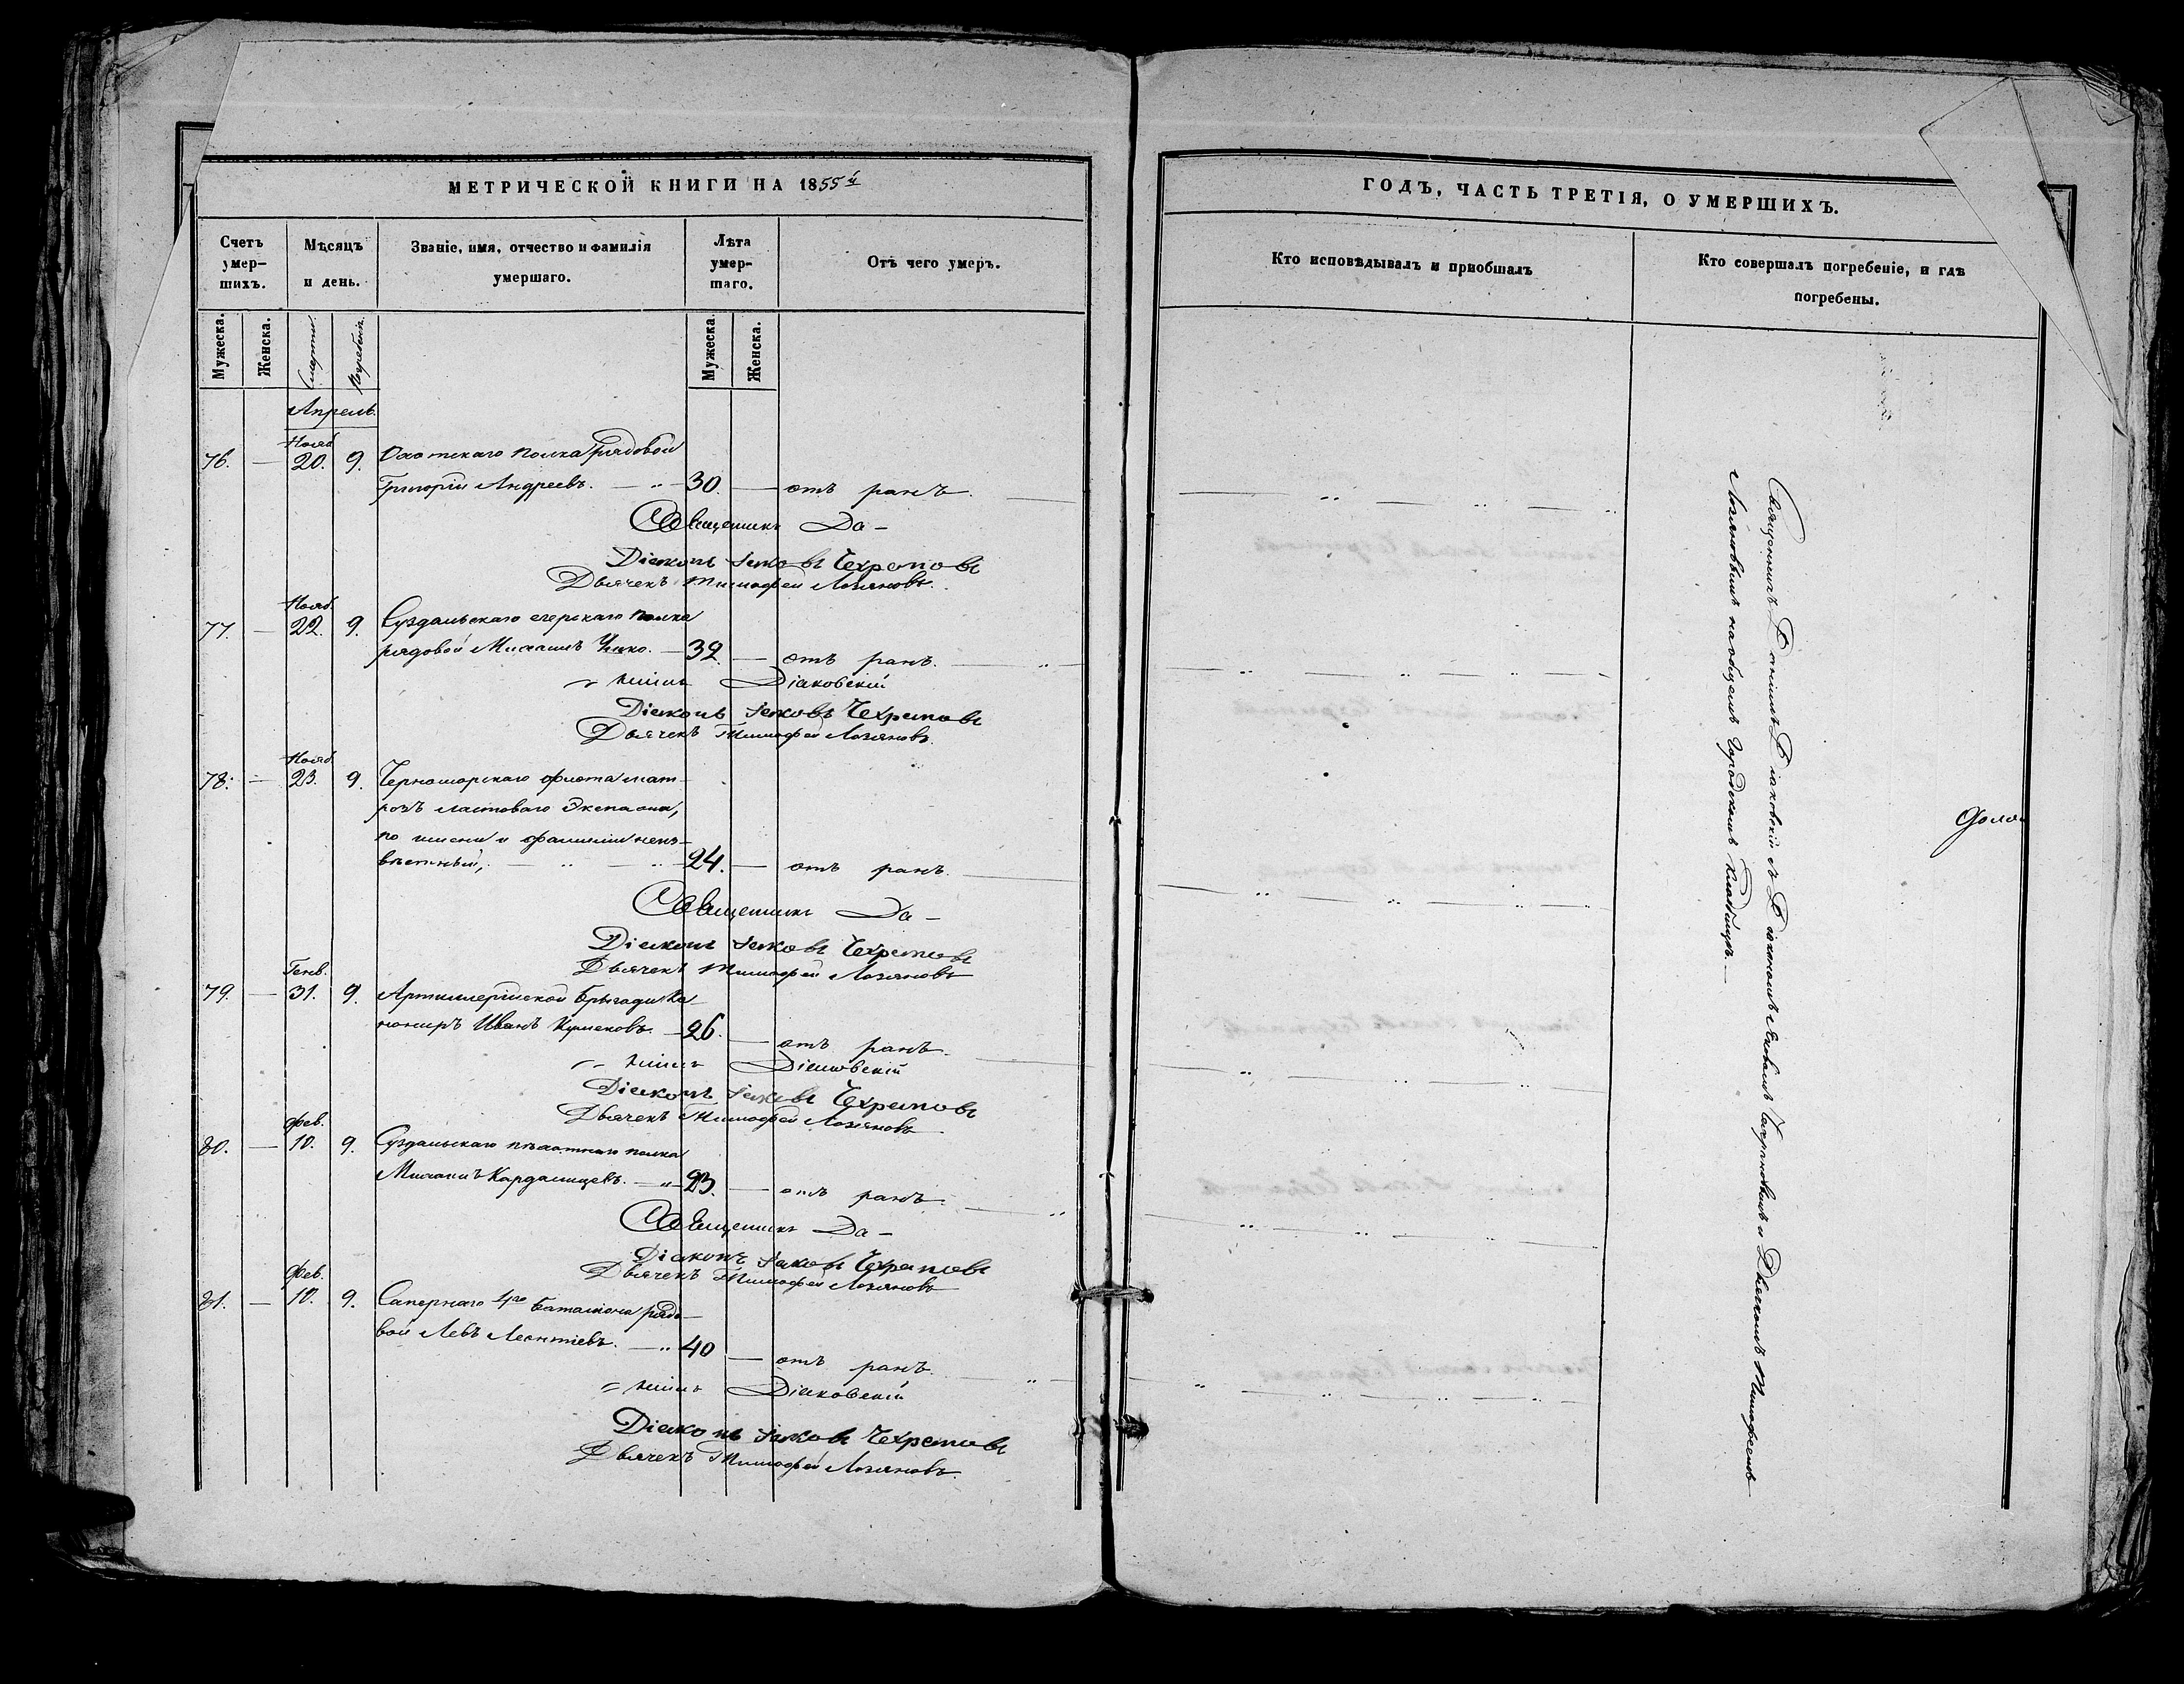 МЕТРИЧЕСКОЙ КНИГИ НА 1855й
Счетъ умер-шихъ.
Мѣсяцъ и день.
Званіе, имя, отчество и фамилія умершаго.
Лѣта умер-шаго.
Отъ чего умеръ.
Мужеска.
Женска.
Смерти.
Погребенія.
Мужеска.
Женска.
Апрель.
Нояб.
76. — 20. 9. Охотскаго полка рядовой
Григорій Андреевъ. — 30. — отъ ранъ.
Священникъ Да-
Діаконъ Іаковъ Чехрановъ
Дьячекъ Тимофей Логяновъ.
Нояб.
77. — 22. 9. Суздальскаго егерскаго полка
рядовой Михаилъ — 32. — отъ ранъ.
ніилъ Діаковскій
Діаконъ Іаковъ Чехрановъ
Дьячекъ Тимофей Логяновъ.
Нояб.
78. — 23. 9. Черноморскаго флота мат-
розъ ластоваго Экепажа,
по имени и фамиліи неиз-
вѣстный, — 24. — отъ ранъ.
Священникъ Да-
Діаконъ Іаковъ Чехрановъ
Дьячекъ Тимофей Логяновъ
Генв.
79. — 31. 9. Артиллерійской бригады Ка-
нониръ Иванъ — 26. — отъ ранъ.
ніилъ Діаковскій
Діаконъ Іаковъ Чехрановъ
Дьячекъ Тимофей Логяновъ
Фев.
80. — 10. 9. Суздальскаго пѣхотнаго полка
Михаилъ Кардалицевъ. — 23. — отъ ранъ.
Священникъ Да-
Діаконъ Іаковъ Чехрановъ
Дьячекъ Тимофей Логяновъ
Фев.
81. — 10. 9. Сапернаго 4го баталіона рядо-
вой Левъ Леонтіевъ. — 40 — отъ ранъ.
ніилъ Діаковскій
Діаконъ Іаковъ Чехрановъ
Дьячекъ Тимофей Логяновъ.
ГОДЪ, ЧАСТЬ ТРЕТІЯ, О УМЕРШИХЪ.
Кто исповѣдывалъ и пріобщалъ
Кто совершалъ погребеніе, и гдѣ погребены.
Священникъ Даніилъ Діаковскій съ Діакономъ Іаковомъ Чехрановымъ и Дьячкомъ Тимофеемъ
Логяновымъ на общемъ Городскомъ Кладбищѣ.